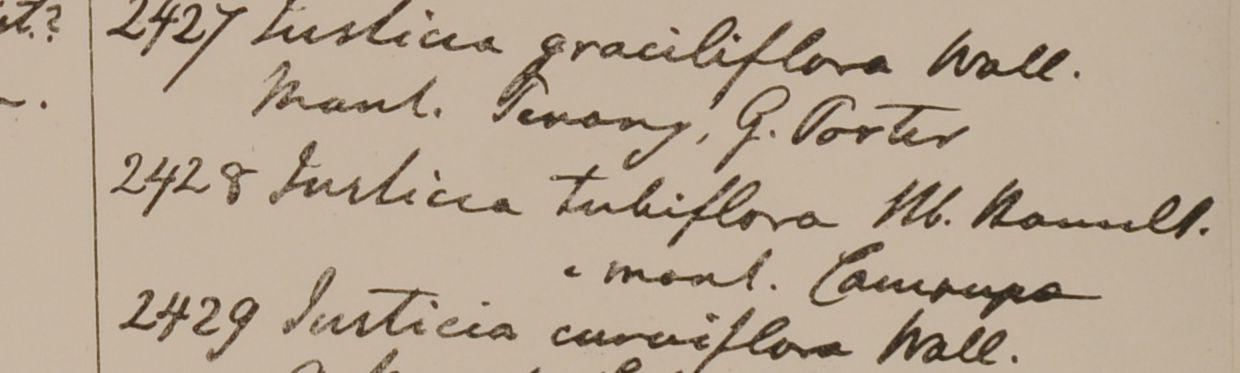 2427 Justicia graciliflora Wall.
Mont. Penang, G. Porter
2428 Justicia tubiflora Hb. Hamilt.
e mont. Camrupa
2429 Justicia curviflora Wall.